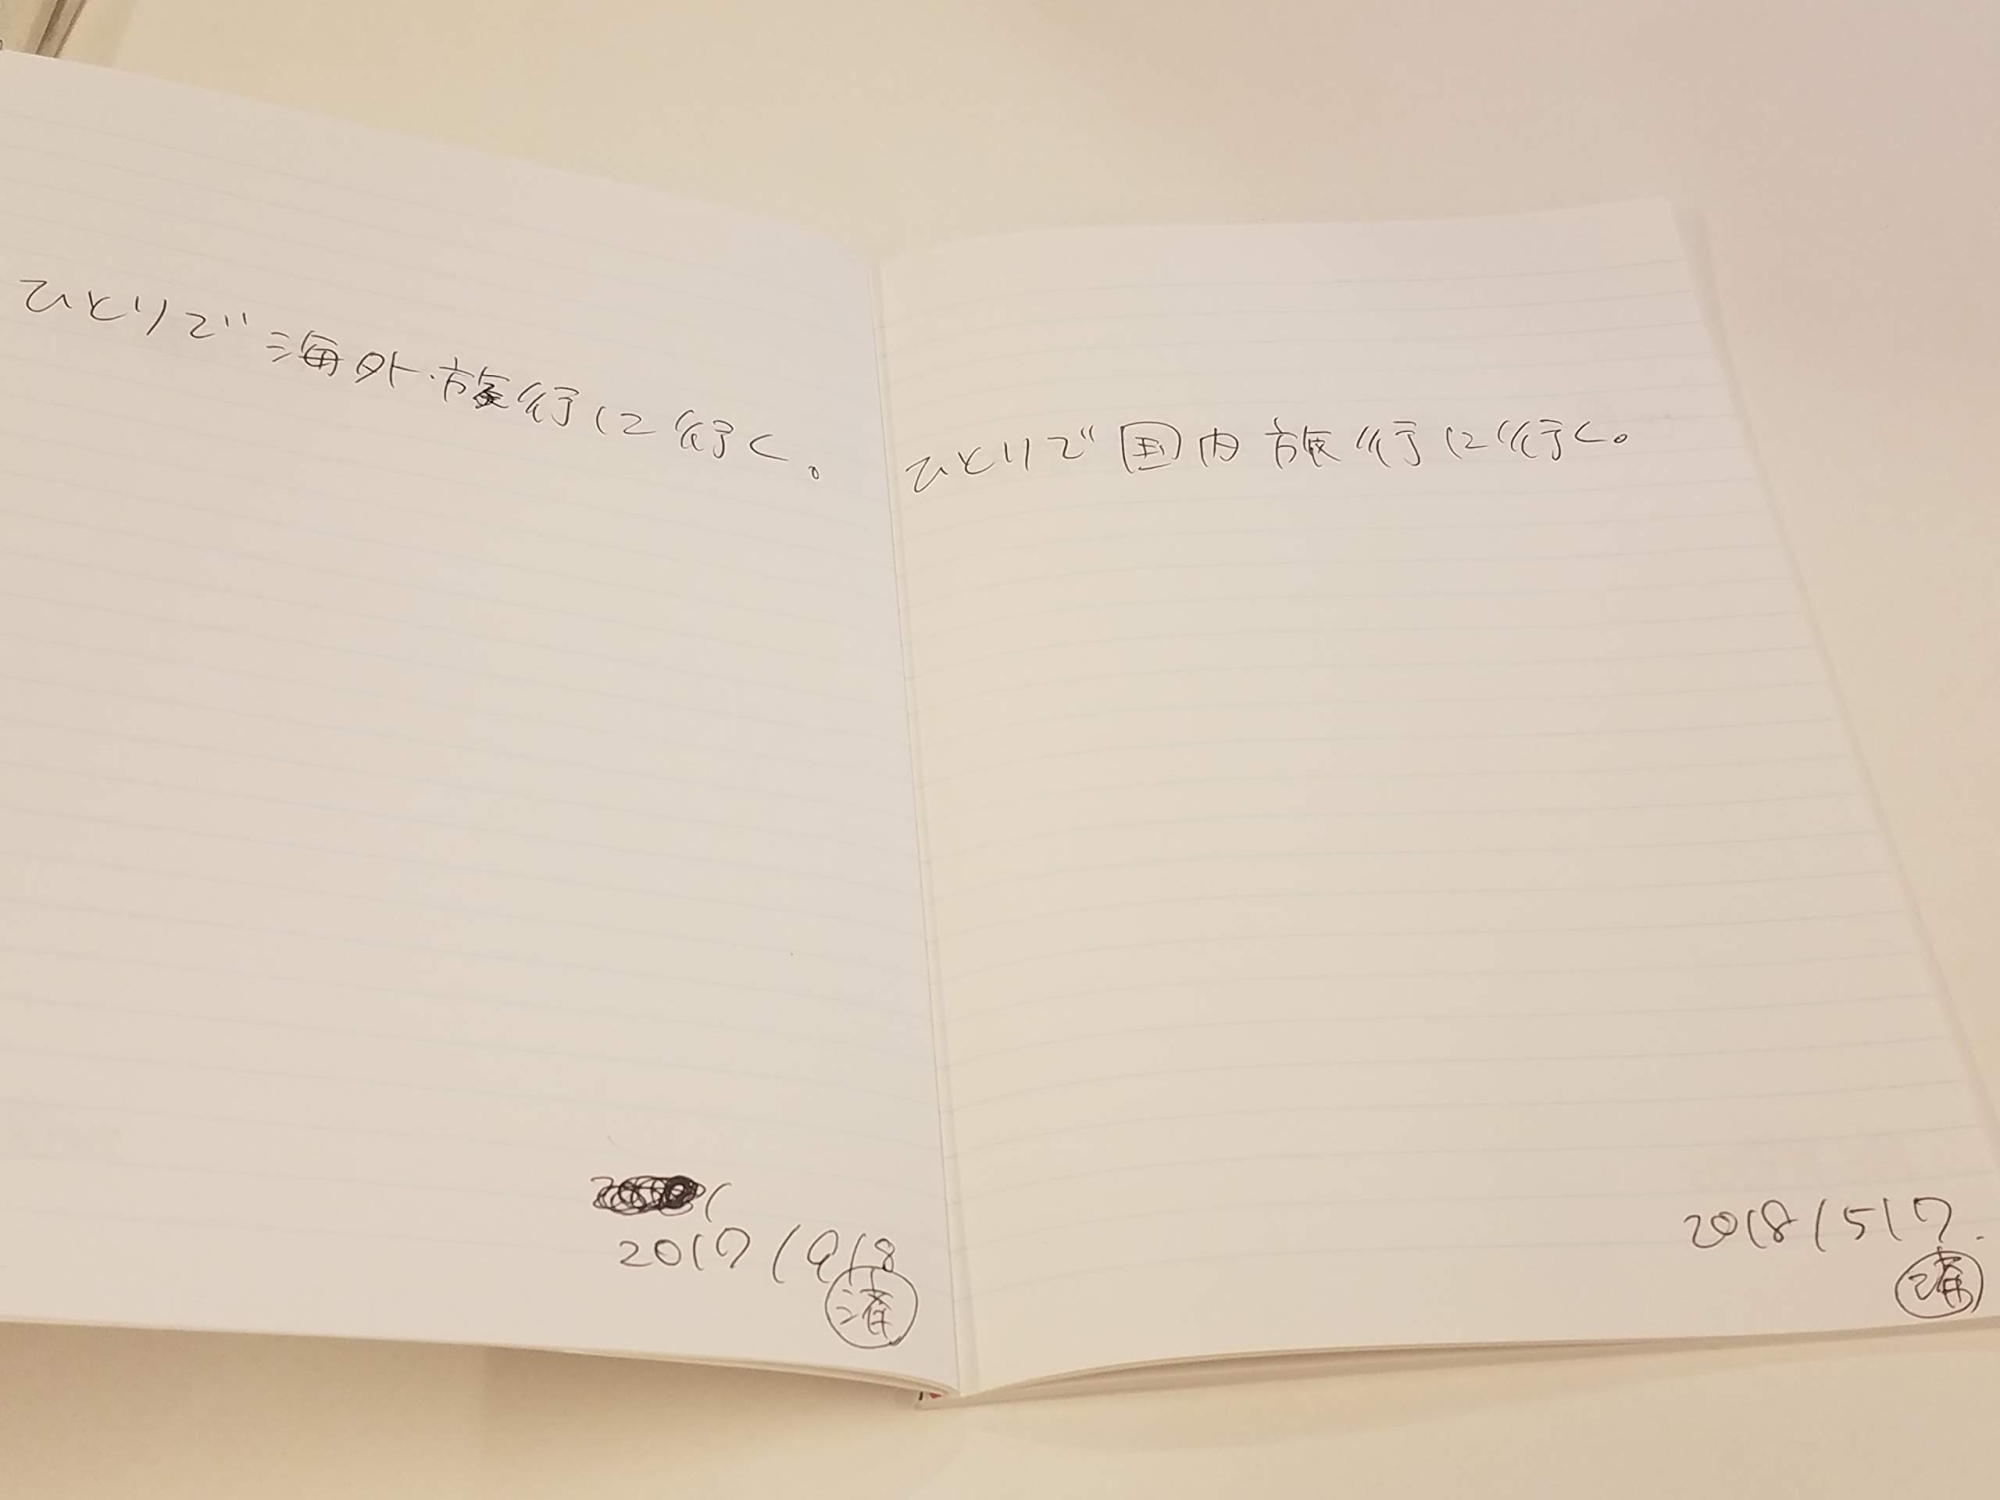 ひとりで海外旅行に行く。
2017/9/8
済
ひとりで国内旅行に行く。
2018/5/7.
済